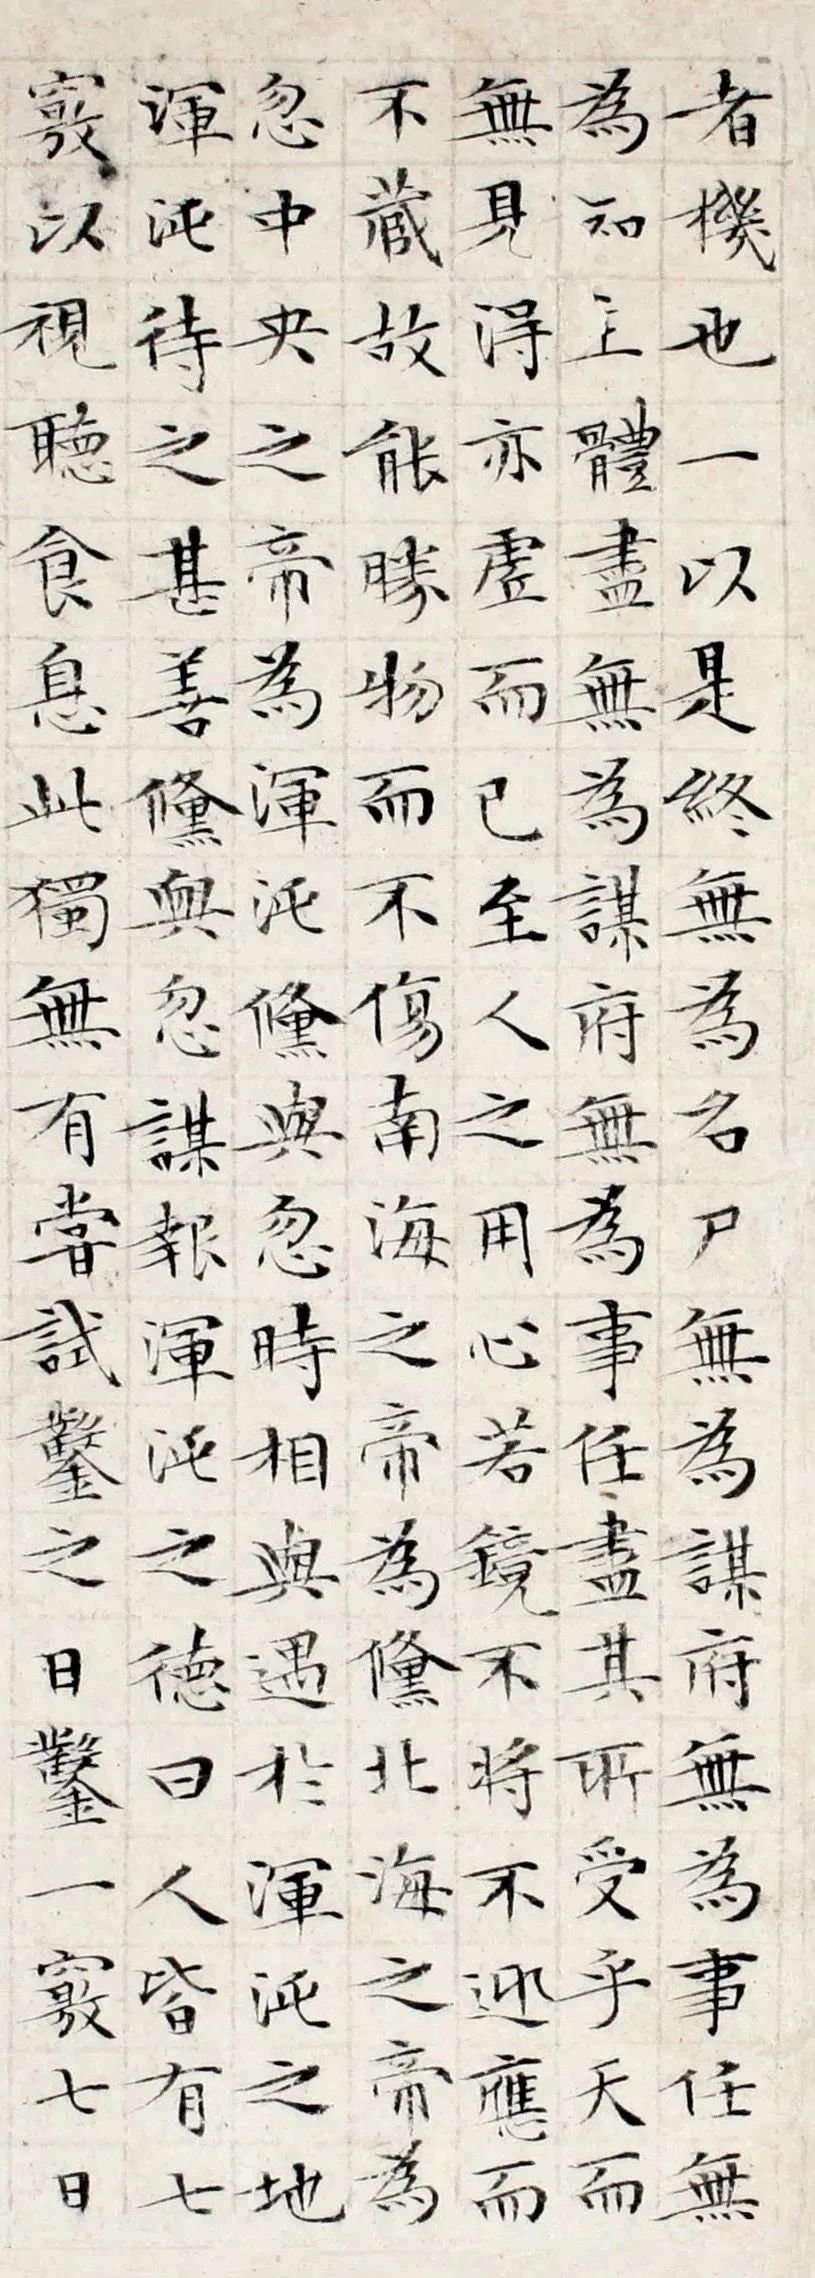 者機也一以是終無為名尸無為謀府無為事任無
為知主體盡無為謀府無為事任盡其所受乎天而
無見得亦虛而已至人之用心若鏡不將不迎應而
不藏故能勝物而不傷南海之帝為儵北海之帝為
忽中央之帝為渾沌儵與忽時相與遇於渾沌之地
渾沌待之甚善儵與忽謀報渾沌之德曰人皆有七
竅以視聽食息此獨無有嘗試鑿之日鑿一竅七日